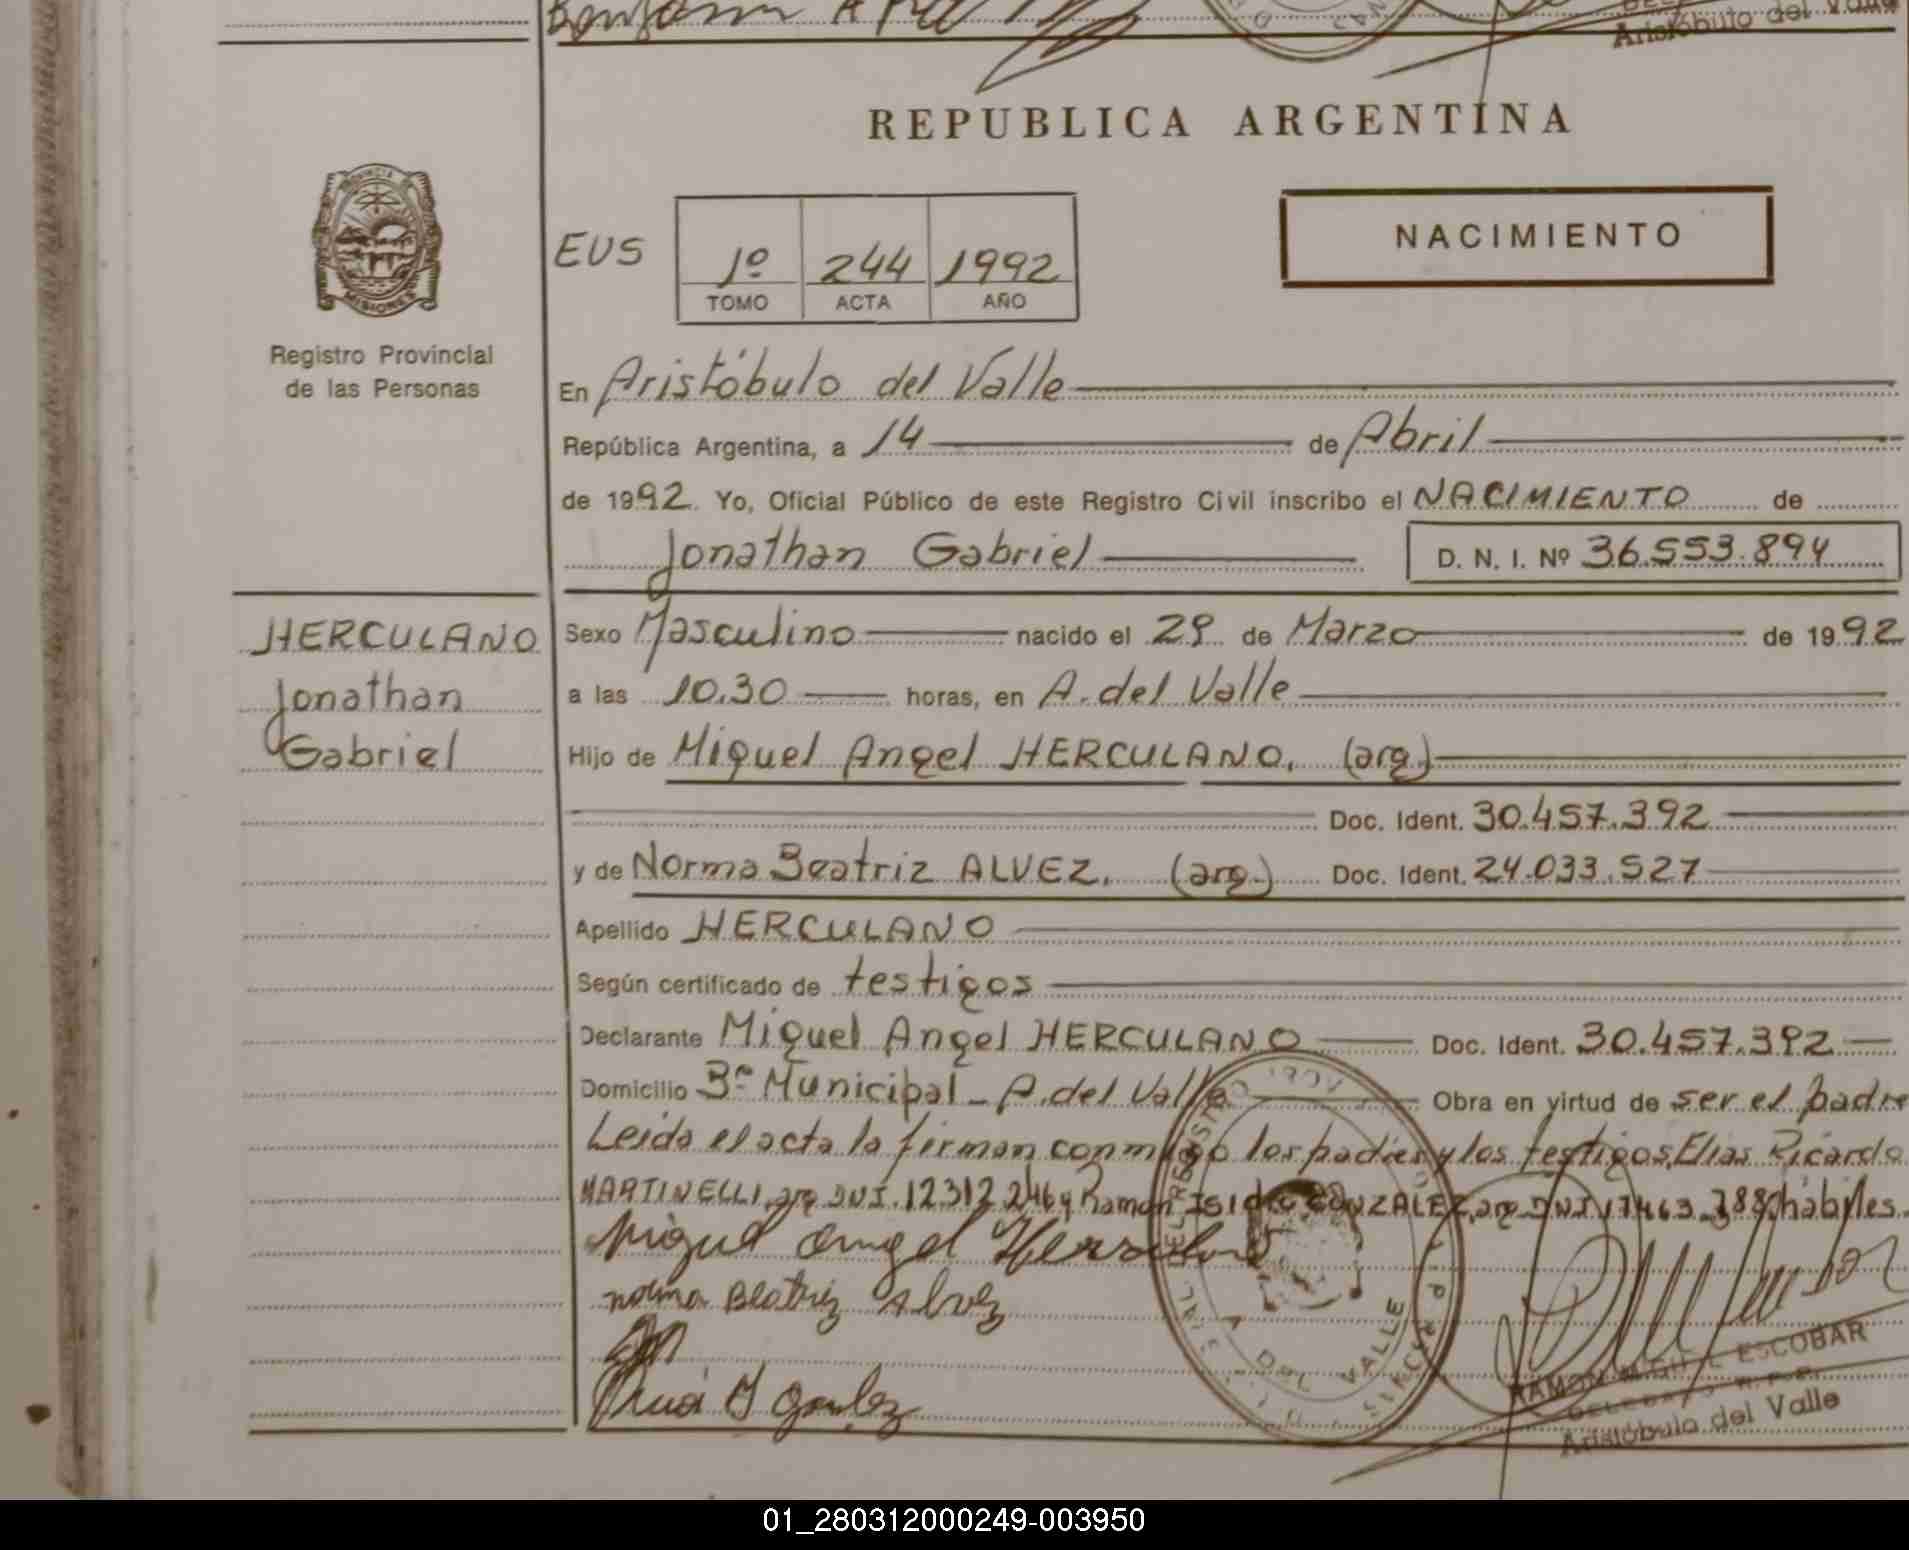 Aristóbulo del Valle
REPUBLICA ARGENTINA
PROVINCIA DE
MISIONES
Registro Provincial
de las Personas
EUS
1º 244 1992
TOMO ACTA AÑO
NACIMIENTO
En Aristóbulo del Valle
República Argentina, a 14 de Abril
de 1992. Yo, Oficial Público de este Registro Civil inscribo el NACIMIENTO de
Jonathan Gabriel D. N. I. Nº 36.553.894
HERCULANO
Jonathan
Gabriel
Sexo Masculino nacido el 29 de Marzo de 1992
a las 10.30 horas, en A. del Valle
Hijo de Miguel Angel HERCULANO, (arg.)
Doc. Ident. 30.457.392
y de Norma Beatriz ALVEZ, (arg.) Doc. Ident. 24.033.527
Apellido HERCULANO
Según certificado de testigos
Declarante Miguel Angel HERCULANO Doc. Ident. 30.457.392
Domicilio Bº Municipal - A. del Valle Obra en virtud de ser el padre
Leida el acta la firman conmigo los padres y los testigos Elias Ricardo
MARTINELLI, arg. DNI. 12312246 y Ramon ISIDRO GONZALEZ, arg. DNI 17463788, hábiles.
Miguel Angel Herculano
norma Beatriz Alvez
DEL VALLE
RAMON MIGUEL ESCOBAR
DELEGADO R. P. P.
Aristóbulo del Valle
01_280312000249-003950